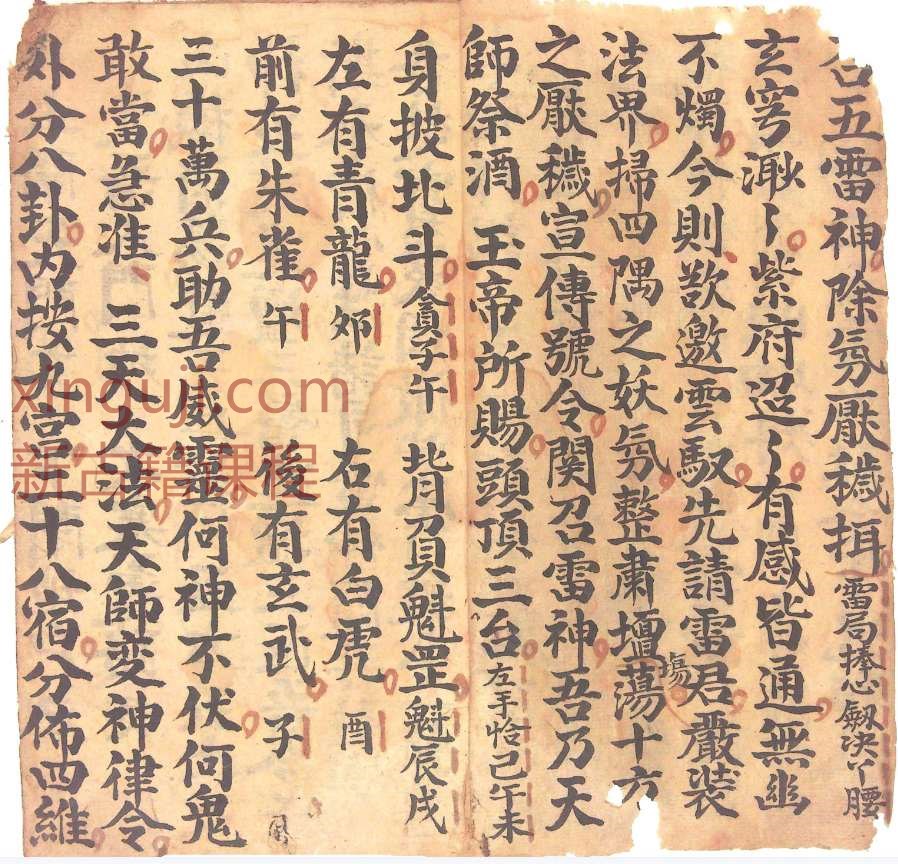 五雷神除氛厭穢揖 雷局捧心劔决丫腰
玄穹渺〻紫府迢〻有感皆通無幽
不燭今則欲邀雲馭先請雷君嚴装
法界掃四隅之妖氛整肅壇塲蕩十
之厭穢宣傳號令関召雷神吾乃天
師祭酒 玉帝所賜頭頂三台 左手恰己午未
身披北斗 貪子午 背負魁罡 魁辰戌
左有青龍 夘 右有白虎 酉
前有朱雀 午 後有玄武 子
三十萬兵助吾威靈何神不伏何鬼
敢當急准 三天大法天師変神律令
外分八卦内按九宫二十八宿分佈四維
xinguji.com
新古籍课程